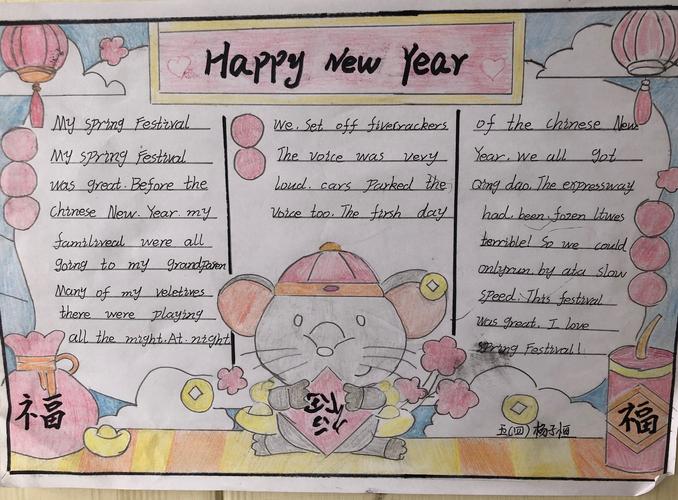 Happy New Year
My Spring Festival
My Spring Festival
was great. Before the
Chinese New. Year. my
familiveal were all
going to my grandparen
Many of my veletives
there were playing
all the might. At. night
We. Set off firecrackers
The voice was very
loud. cars Parked the
voice too. The firsh day
of the Chinese New
Year. we all got
Qing dao. The expressway
had. been. fozen
terrible! So we could
onlyrun. by ata slow
speed. This festival
was great. I love
Spring Festival!
福
福
福
五(四) 杨子恒